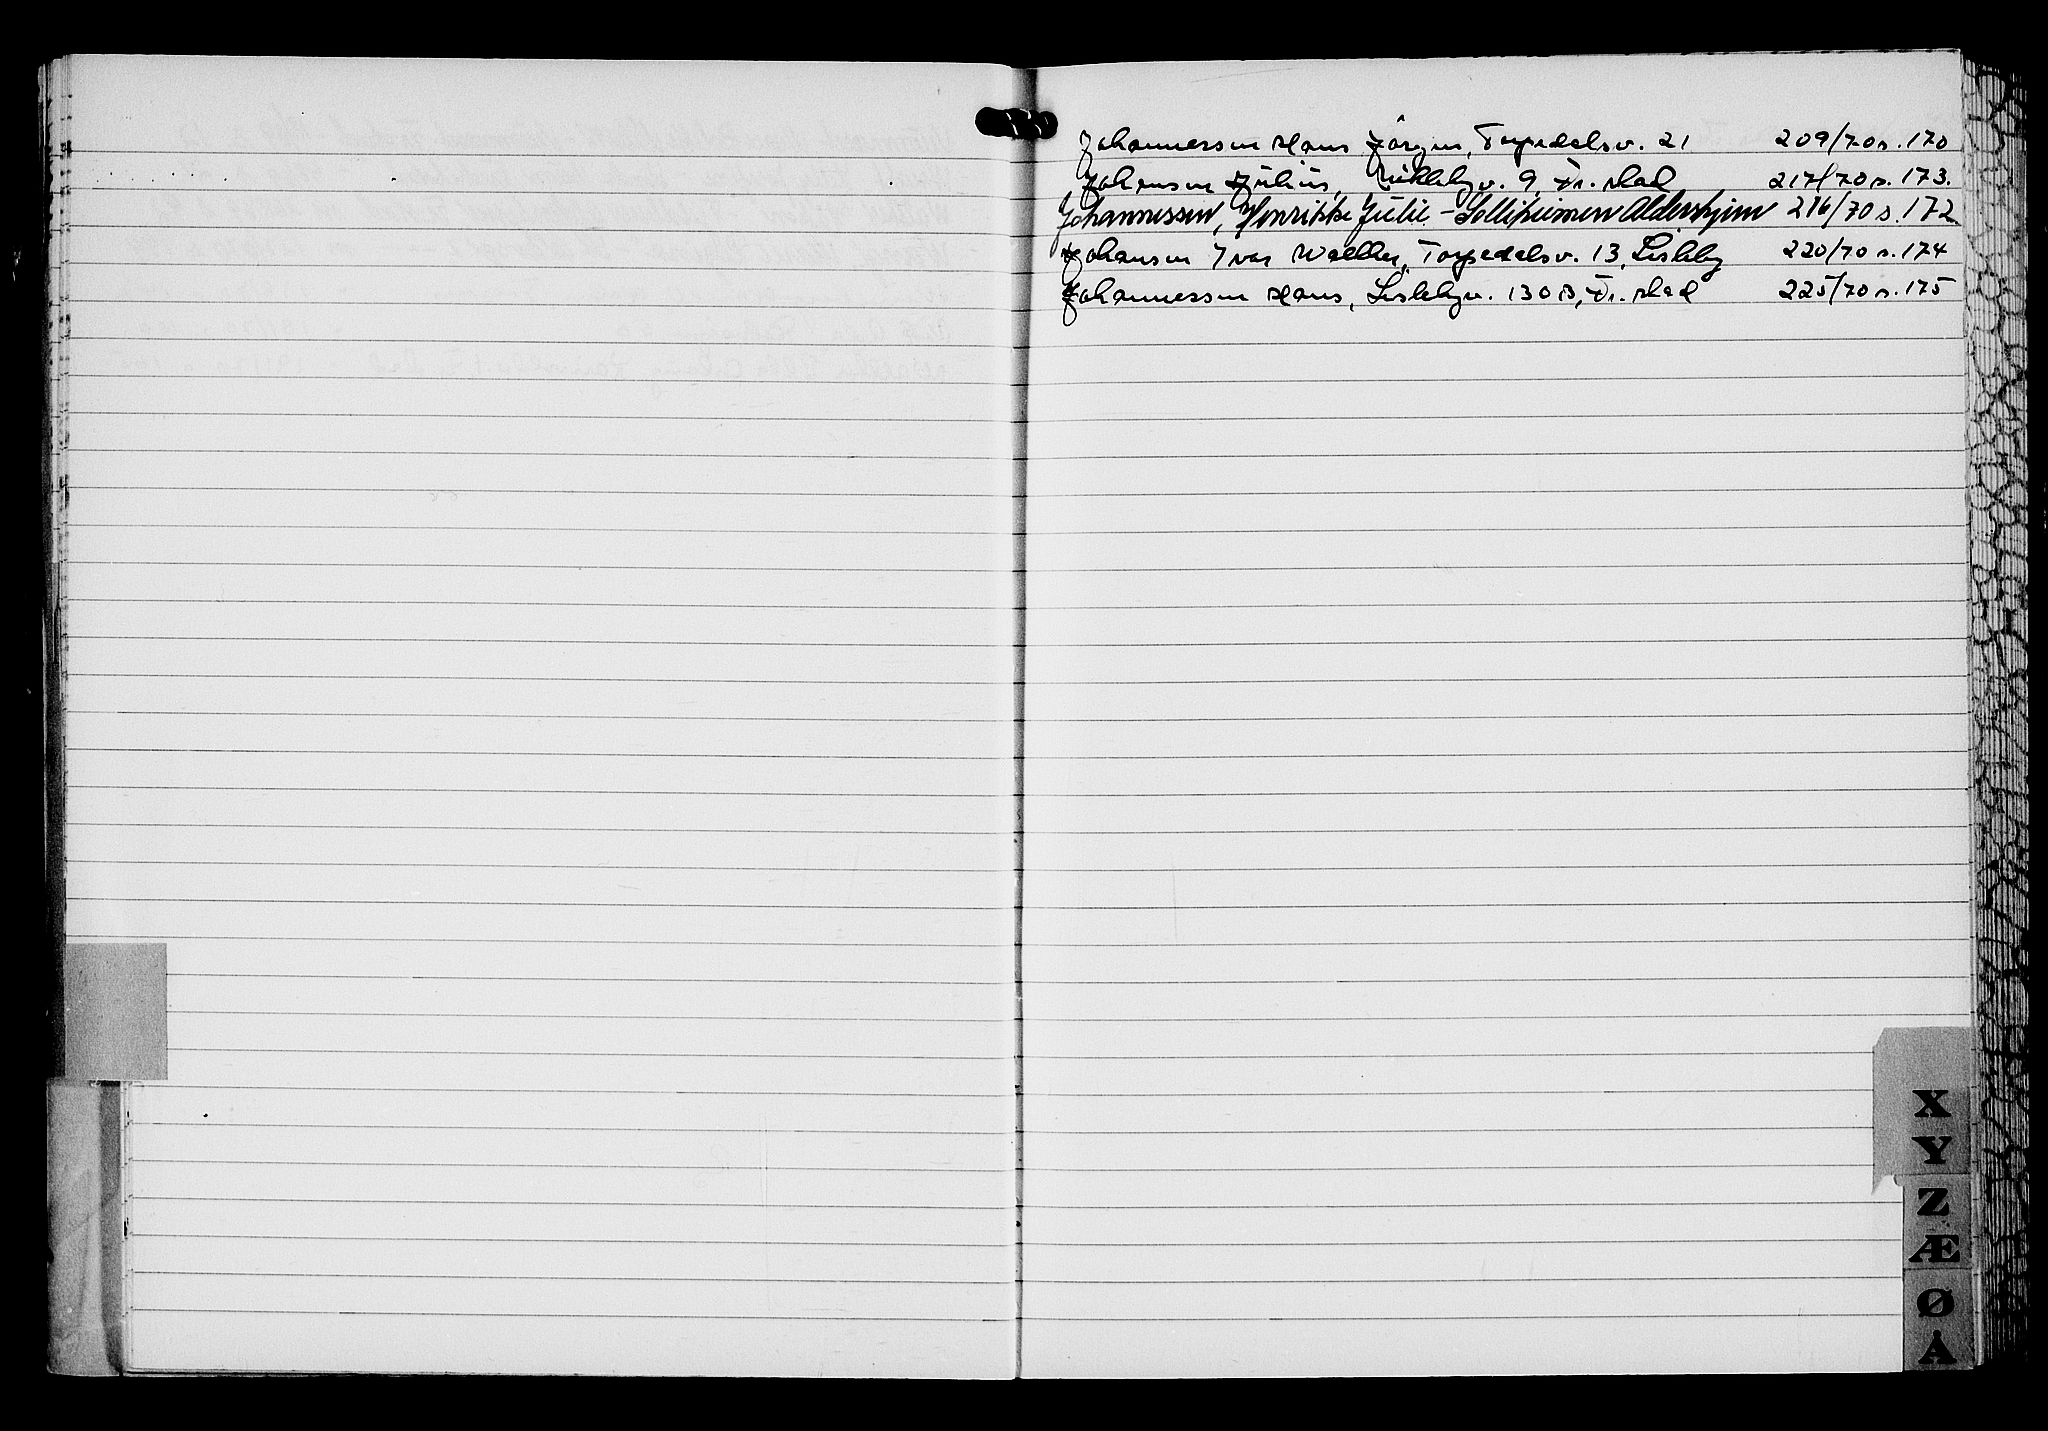 Johannessen Hans Jörgen, Torpedalsv. 21 209/70 s. 170
Johansen Julius, v. 9, Fr.stad 217/70 s. 173.
Johannessen, Henrikke Julie - Solliheimen Aldershjem 216/70 s. 172
Johansen Ivar Walther, Torpedalsv. 13, Lisleby 220/70 s. 174
Johannessen Hans, Lislebyv. 130B, Fr.stad 225/70 s. 175
X
Y
Z
Æ
Ø
Å